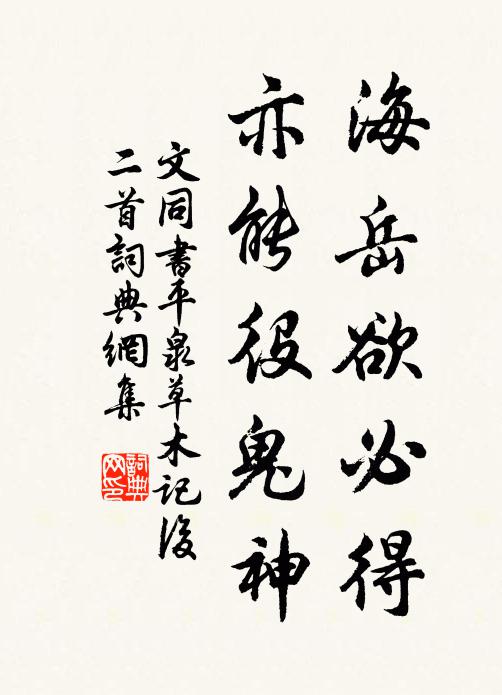 海岳欲必得
亦能役鬼神
文同書平泉草木記後
二首詞典網集
詞典网印